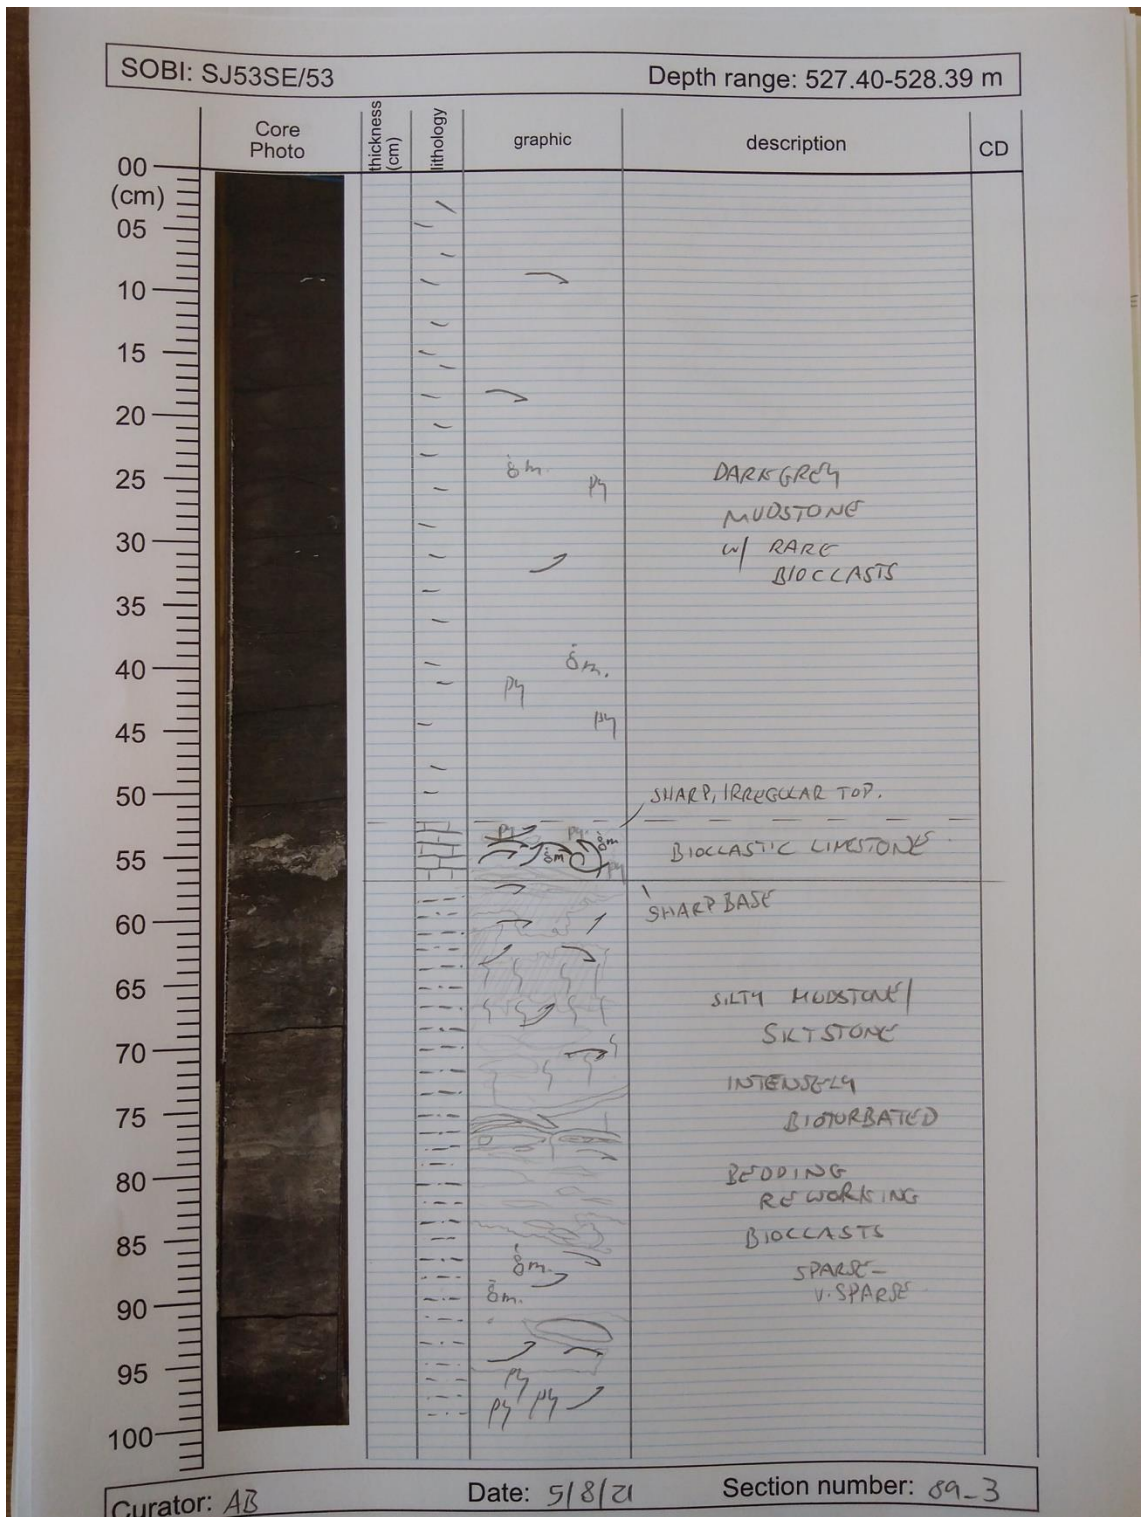 SOBI: SJ53SE/53
Depth range: 527.40-528.39 m
Core
Photo
thickness
(cm)
lithology
graphic
description
CD
00
(cm)
05
10
15
20
25
30
35
40
45
50
55
60
65
70
75
80
85
90
95
100
m.
py
DARK GREY
MUDSTONE
w/ RARE
BIOCLASTS
m.
py
py
SHARP, IRREGULAR TOP.
py
py
m
m
py
BIOCLASTIC LIMESTONE
SHARP BASE
SILTY MUDSTONE/
SILTSTONE
INTENSELY
BIOTURBATED
BEDDING
REWORKING
BIOCLASTS
SPARSE-
V. SPARSE
m.
m.
py
py py
Curator: AB
Date: 5/8/21
Section number: 89_3